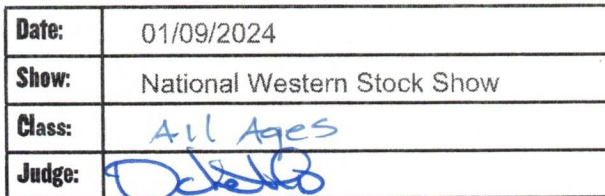 Date: 01/09/2024
Show: National Western Stock Show
Class: All Ages
Judge: